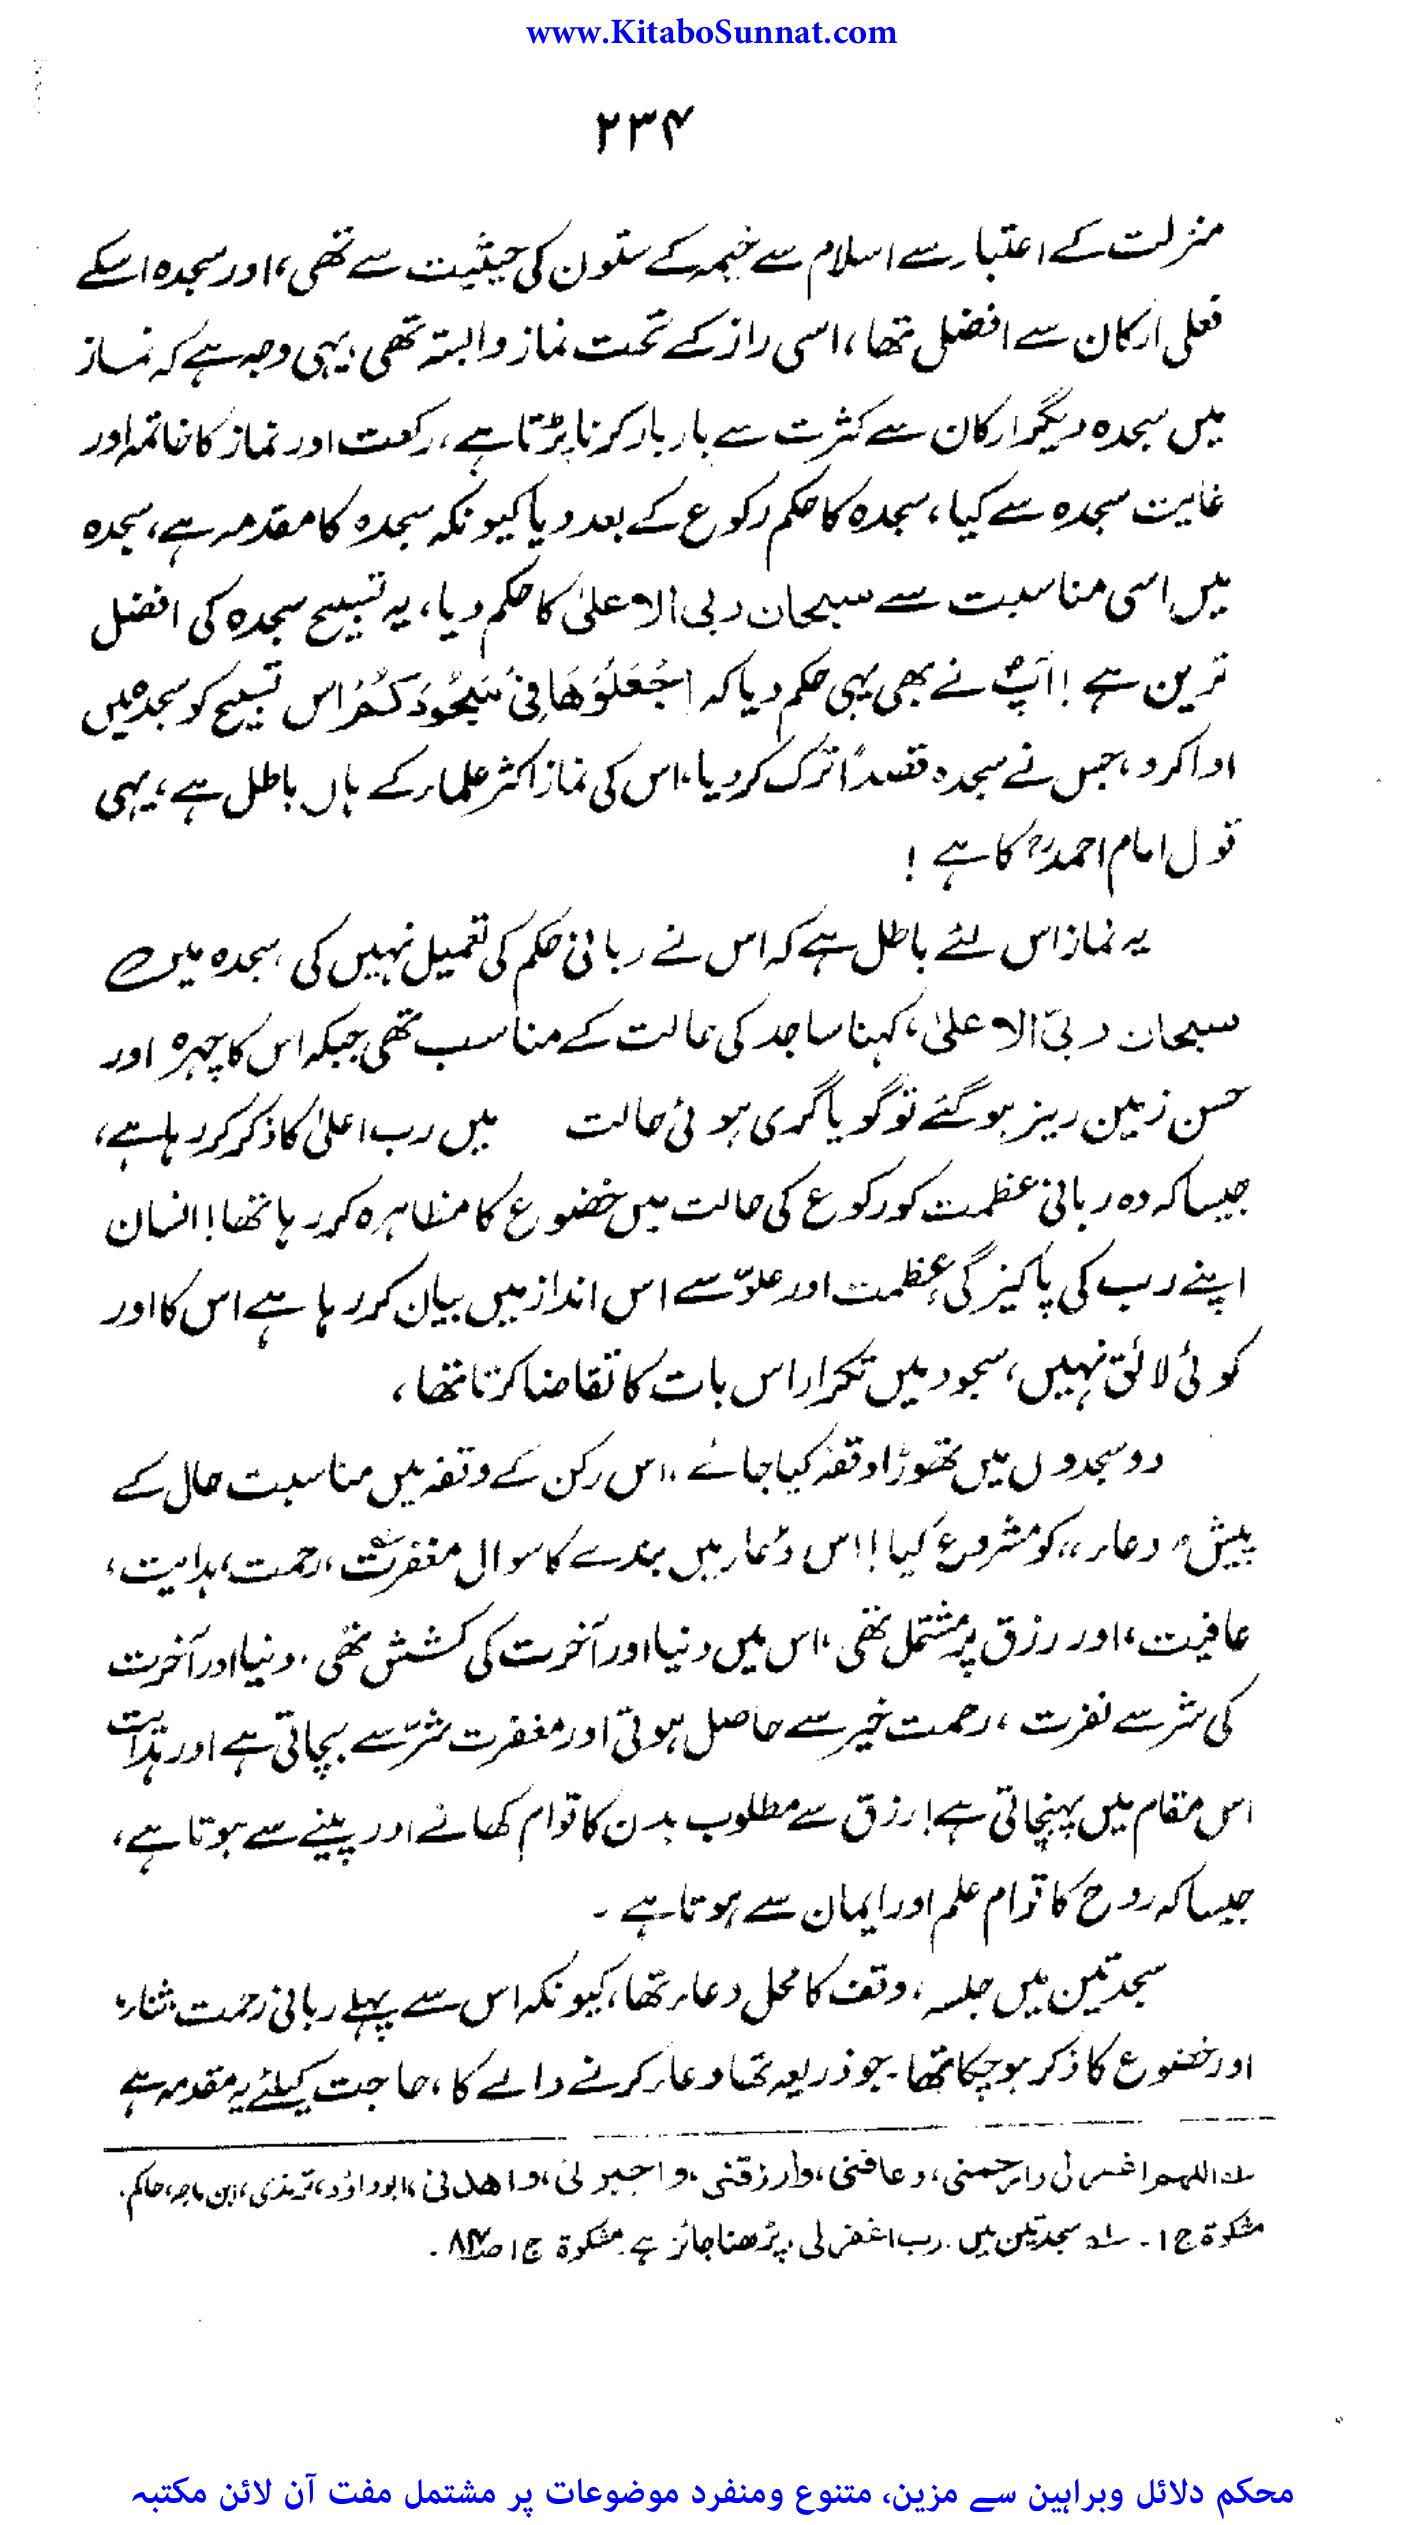 www.KitaboSunnat.com
۲۳۴
منزلت کے اعتبار سے اسلام سے خیمہ کے ستون کی حیثیت سے تھی، اور سجدہ اسکے
فعلی ارکان سے افضل تھا، اسی راز کے تحت نماز وابستہ تھی، یہی وجہ ہے کہ نماز
میں سجدہ دیگر ارکان سے کثرت سے بار بار کرنا پڑتا ہے، رکعت اور نماز کا خاتمہ اور
غایت سجدہ سے کیا، سجدہ کا حکم رکوع کے بعد دیا کیونکہ سجدہ کا مقدمہ ہے، سجدہ
میں اسی مناسبت سے سبحان ربی الاعلیٰ کا حکم دیا، یہ تسبیح سجدہ کی افضل
ترین ہے! آپؐ نے بھی یہی حکم دیا کہ اجْعَلُوْهَا فِیْ سُجُوْدِكُمْ اس تسبیح کو سجدہ میں
ادا کرو، جس نے سجدہ قصداً ترک کر دیا، اس کی نماز اکثر علماء کے ہاں باطل ہے، یہی
قول امام احمدؒ کا ہے !
یہ نماز اس لئے باطل ہے کہ اس نے ربانی حکم کی تعمیل نہیں کی، سجدہ میں
سبحان ربیّ الاعلیٰ، کہنا ساجد کی حالت کے مناسب تھی جبکہ اس کا چہرہ اور
حسن زمین ریز ہو گئے تو گویا گری ہوئی حالت میں رب اعلیٰ کا ذکر کر رہا ہے،
جیسا کہ وہ ربانی عظمت کو رکوع کی حالت میں خضوع کا مظاہرہ کر رہا تھا! انسان
اپنے رب کی پاکیزگی، عظمت اور علوّ سے اس انداز میں بیان کر رہا ہے اس کا اور
کوئی لائق نہیں، سجود میں تکرار اس بات کا تقاضا کرتا تھا،
دو سجدوں میں تھوڑا وقفہ کیا جائے،، اس رکن کے وقفہ میں مناسبت حال کے
پیش ،، دعاء ،، کو مشروع کیا! اس دُعاء میں بندے کا سوال مغفرت، رحمت، ہدایت،
عافیت، اور رزق پر مشتمل تھی، اس میں دنیا اور آخرت کی کشش تھی، دنیا اور آخرت
کی شر سے نفرت، رحمت خیر سے حاصل ہوتی اور مغفرت شرّ سے بچاتی ہے اور ہدایت
اس مقام میں پہنچاتی ہے! رزق سے مطلوب بدن کا قوام کھانے اور پینے سے ہوتا ہے،
جیسا کہ روح کا قوام علم اور ایمان سے ہوتا ہے ۔
سجدتین میں جلسہ، وقف کا محل دعاء تھا، کیونکہ اس سے پہلے ربانی رحمت، ثناء،
اور خضوع کا ذکر ہو چکا تھا۔ جو ذریعہ تھا دعاء کرنے والے کا، حاجت کیلئے یہ مقدمہ ہے
لہ اللہم اغفر لی وارحمنی، وعافنی، وارزقنی، واجبرنی، واھدنی، ابو داؤد، ترمذی، ابن ماجہ، حاکم،
مشکوۃ ج ۱۔ لہ سجدتین میں. رب اغفرلی، پڑھنا جائز ہے. مشکوۃ ج ۱ ص ۸۴ ۔
محکم دلائل وبراہین سے مزین، متنوع ومنفرد موضوعات پر مشتمل مفت آن لائن مکتبہ